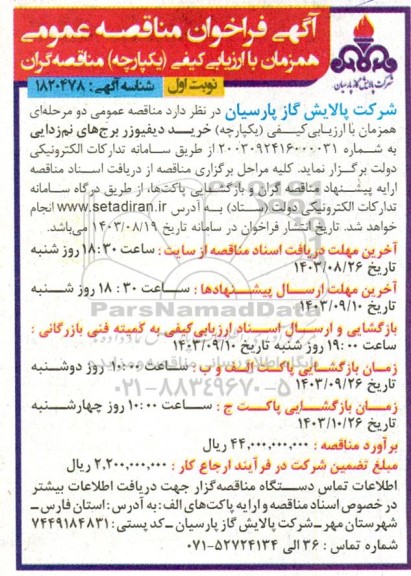 آگهی فراخوان مناقصه عمومی
همزمان با ارزیابی کیفی (یکپارچه) مناقصه گران
شرکت پالایش گاز پارسیان
نوبت اول
شناسه آگهی: ۱۸۲۰۴۷۸
شرکت پالایش گاز پارسیان در نظر دارد مناقصه عمومی دو مرحله‌ای
همزمان با ارزیابی کیفی (یکپارچه) خرید دیفیوزر برج‌های نم‌زدایی
به شماره ۲۰۰۳۰۹۲۴۱۶۰۰۰۰۳۱ از طریق سامانه تدارکات الکترونیکی
دولت برگزار نماید. کلیه مراحل برگزاری مناقصه از دریافت اسناد مناقصه
ارایه پیشنهاد مناقصه گران و بازگشایی پاکت‌ها، از طریق درگاه سامانه
تدارکات الکترونیکی دولت (ستاد) به آدرس www.setadiran.ir انجام
خواهد شد. تاریخ انتشار فراخوان در سامانه تاریخ ۱۴۰۳/۰۸/۱۹ می‌باشد.
آخرین مهلت دریافت اسناد مناقصه از سایت : ساعت ۱۸:۳۰ روز شنبه
تاریخ ۱۴۰۳/۰۸/۲۶
آخرین مهلت ارسال پیشنهادها : ساعت ۱۸:۳۰ روز شنبه
تاریخ ۱۴۰۳/۰۹/۱۰
ParsNamadData
بازگشایی و ارسال اسناد ارزیابی کیفی به کمیته فنی بازرگانی :
ساعت ۱۹:۰۰ روز شنبه تاریخ ۱۴۰۳/۰۹/۱۰
زمان بازگشایی پاکت الف و ب : ساعت ۱۰:۰۰ روز دوشنبه
تاریخ ۱۴۰۳/۰۹/۲۶
۰۲۱-۸۸۳۴۹۶۷۰-۵
زمان بازگشایی پاکت ج : ساعت ۱۰:۰۰ روز چهارشنبه
تاریخ ۱۴۰۳/۱۰/۲۶
برآورد مناقصه : ۴۴,۰۰۰,۰۰۰,۰۰۰ ریال
مبلغ تضمین شرکت در فرآیند ارجاع کار : ۲,۲۰۰,۰۰۰,۰۰۰ ریال
اطلاعات تماس دستگاه مناقصه‌گزار جهت دریافت اطلاعات بیشتر
در خصوص اسناد مناقصه و ارایه پاکت‌های الف: به آدرس : استان فارس ـ
شهرستان مهر ـ شرکت پالایش گاز پارسیان ـ کد پستی : ۷۴۴۹۱۸۴۸۳۱
شماره تماس : ۳۶ الی ۵۲۷۲۴۱۳۴-۰۷۱